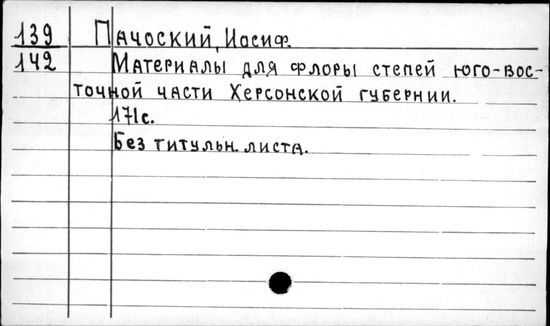 139 Пачоский, Иосиф.
142 Материалы для флоры степей юго-вос-
точной части Херсонской губернии.
171с.
Без титульн. листа.